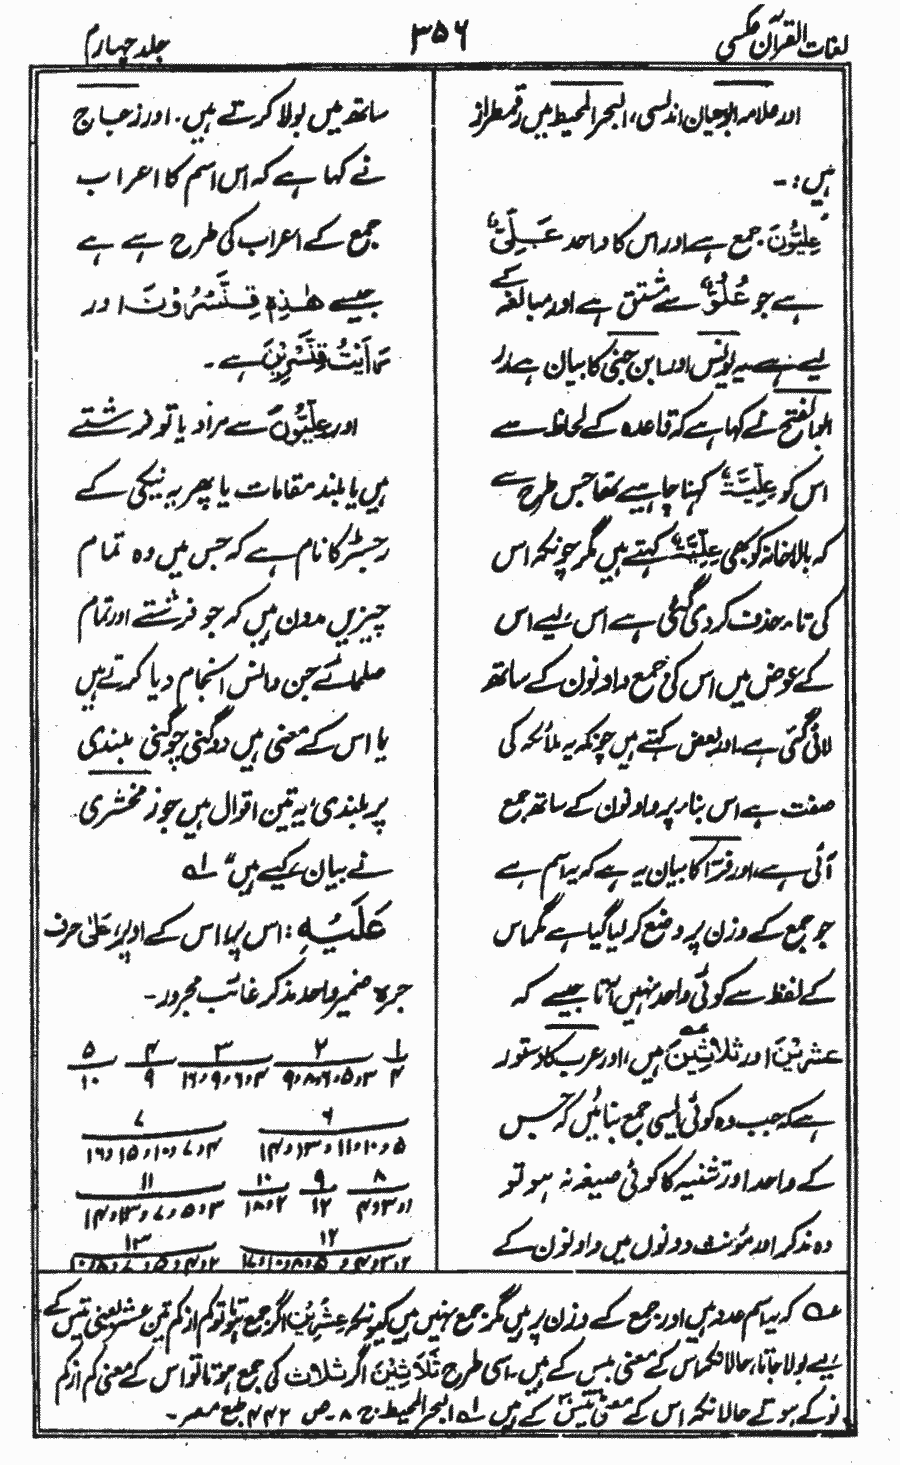 لغات القرآن عکسی
۳۵۶
جلد چہارم
اور علامہ ابوحیان اندلسی، البحر المحیط میں رقمطراز
ہیں :-
عِلِّیُّونَ جمع ہے اور اس کا واحد عَلِیٌّ
ہے جو عُلُوٌّ سے مشتق ہے اور مبالغہ کے
لیے ہے یہ یونس اور ابن جنی کا بیان ہے اور
ابوالفتح نے کہا ہے کہ قاعدہ کے لحاظ سے
اس کو عِلِّیَّۃٌ کہنا چاہیے تھا جس طرح سے
کہ بالاخانہ کو بھی عِلِّیَّۃٌ کہتے ہیں مگر چونکہ اس
کی تاء حذف کر دی گئی ہے اس لیے اس
کے عوض میں اس کی جمع واو نون کے ساتھ
لائی گئی ہے۔ اور بعض کہتے ہیں چونکہ یہ ملائکہ کی
صفت ہے اس بناء پر واو نون کے ساتھ جمع
آئی ہے، اور فرّا کا بیان یہ ہے کہ یہ اسم ہے
جو جمع کے وزن پر وضع کر لیا گیا ہے مگر اس
کے لفظ سے کوئی واحد نہیں آتا جیسے کہ
عِشْرِیْنَ اور ثَلاثِیْنَ ہیں، اور عرب کا دستور
ہے کہ جب وہ کوئی ایسی جمع بنائیں کہ جس
کے واحد اور تثنیہ کا کوئی صیغہ نہ ہو تو
وہ مذکر اور مؤنث دونوں میں واو نون کے
ساتھ میں بولا کرتے ہیں۔ اور زجاج
نے کہا ہے کہ اس اسم کا اعراب
جمع کے اعراب کی طرح ہے ہے
جیسے ھٰذِہٖ قِنَّسْرُوْنَ اور
رَاَیْتُ قِنَّسْرِیْنَ ہے۔
اور عِلِّیُّوْنَ سے مراد یا تو فرشتے
ہیں یا بلند مقامات یا پھر یہ نیکی کے
رجسٹر کا نام ہے کہ جس میں وہ تمام
چیزیں مدون ہیں کہ جو فرشتے اور تمام
صلحائے جن و انس انجام دیا کرتے ہیں
یا اس کے معنی ہیں دوگنی چوگنی بلندی
پر بلندی، یہ تین اقوال ہیں جو زمخشری
نے بیان کیے ہیں“ لہ
عَلَیْہِ : اس پر، اس کے اوپر، عَلٰی حرف
جر ہ ضمیر واحد مذکر غائب مجرور۔
۱ ۲ ۳ ۴ ۵
۴ ۳،۵،۶،۸،۹ ۴،۶،۹،۱۶ ۹ ۱۰
۶ ۷
۵،۱۰،۱۱،۱۳،۱۴ ۴،۷،۱۰،۱۵،۱۶
۸ ۹ ۱۰ ۱۱
۱،۳،۴ ۱۲ ۲،۱۸ ۳،۵،۷،۱۳،۱۴
۱۲ ۱۳
عہ کہ یہ اسم عدد ہیں اور جمع کے وزن پر ہیں مگر جمع نہیں ہیں کیونکہ عِشْرِیْنَ اگر جمع ہوتا تو کم از کم تین عشر یعنی تیس کے
لیے بولا جاتا، حالانکہ اس کے معنی بیس کے ہیں۔ اسی طرح ثَلَاثِیْنَ اگر ثلاث کی جمع ہوتا تو اس کے معنی کم از کم
نو کے ہوتے حالانکہ اس کے معنی تیس کے ہیں لہ البحر المحیط ج ۸ ص ۴۴۲ طبع مصر۔